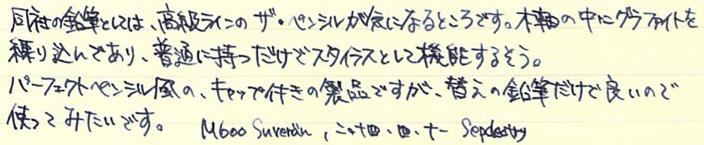 同社の鉛筆としては、高級ラインのザ・ペンシルが気になるところです。木軸の中にグラファイトを
練り込んであり、普通に持つだけでスタイラスとして機能するそう。
パーフェクトペンシル風の、キャップ付きの製品ですが、替えの鉛筆だけで良いので
使ってみたいです。 M600 Suverän,